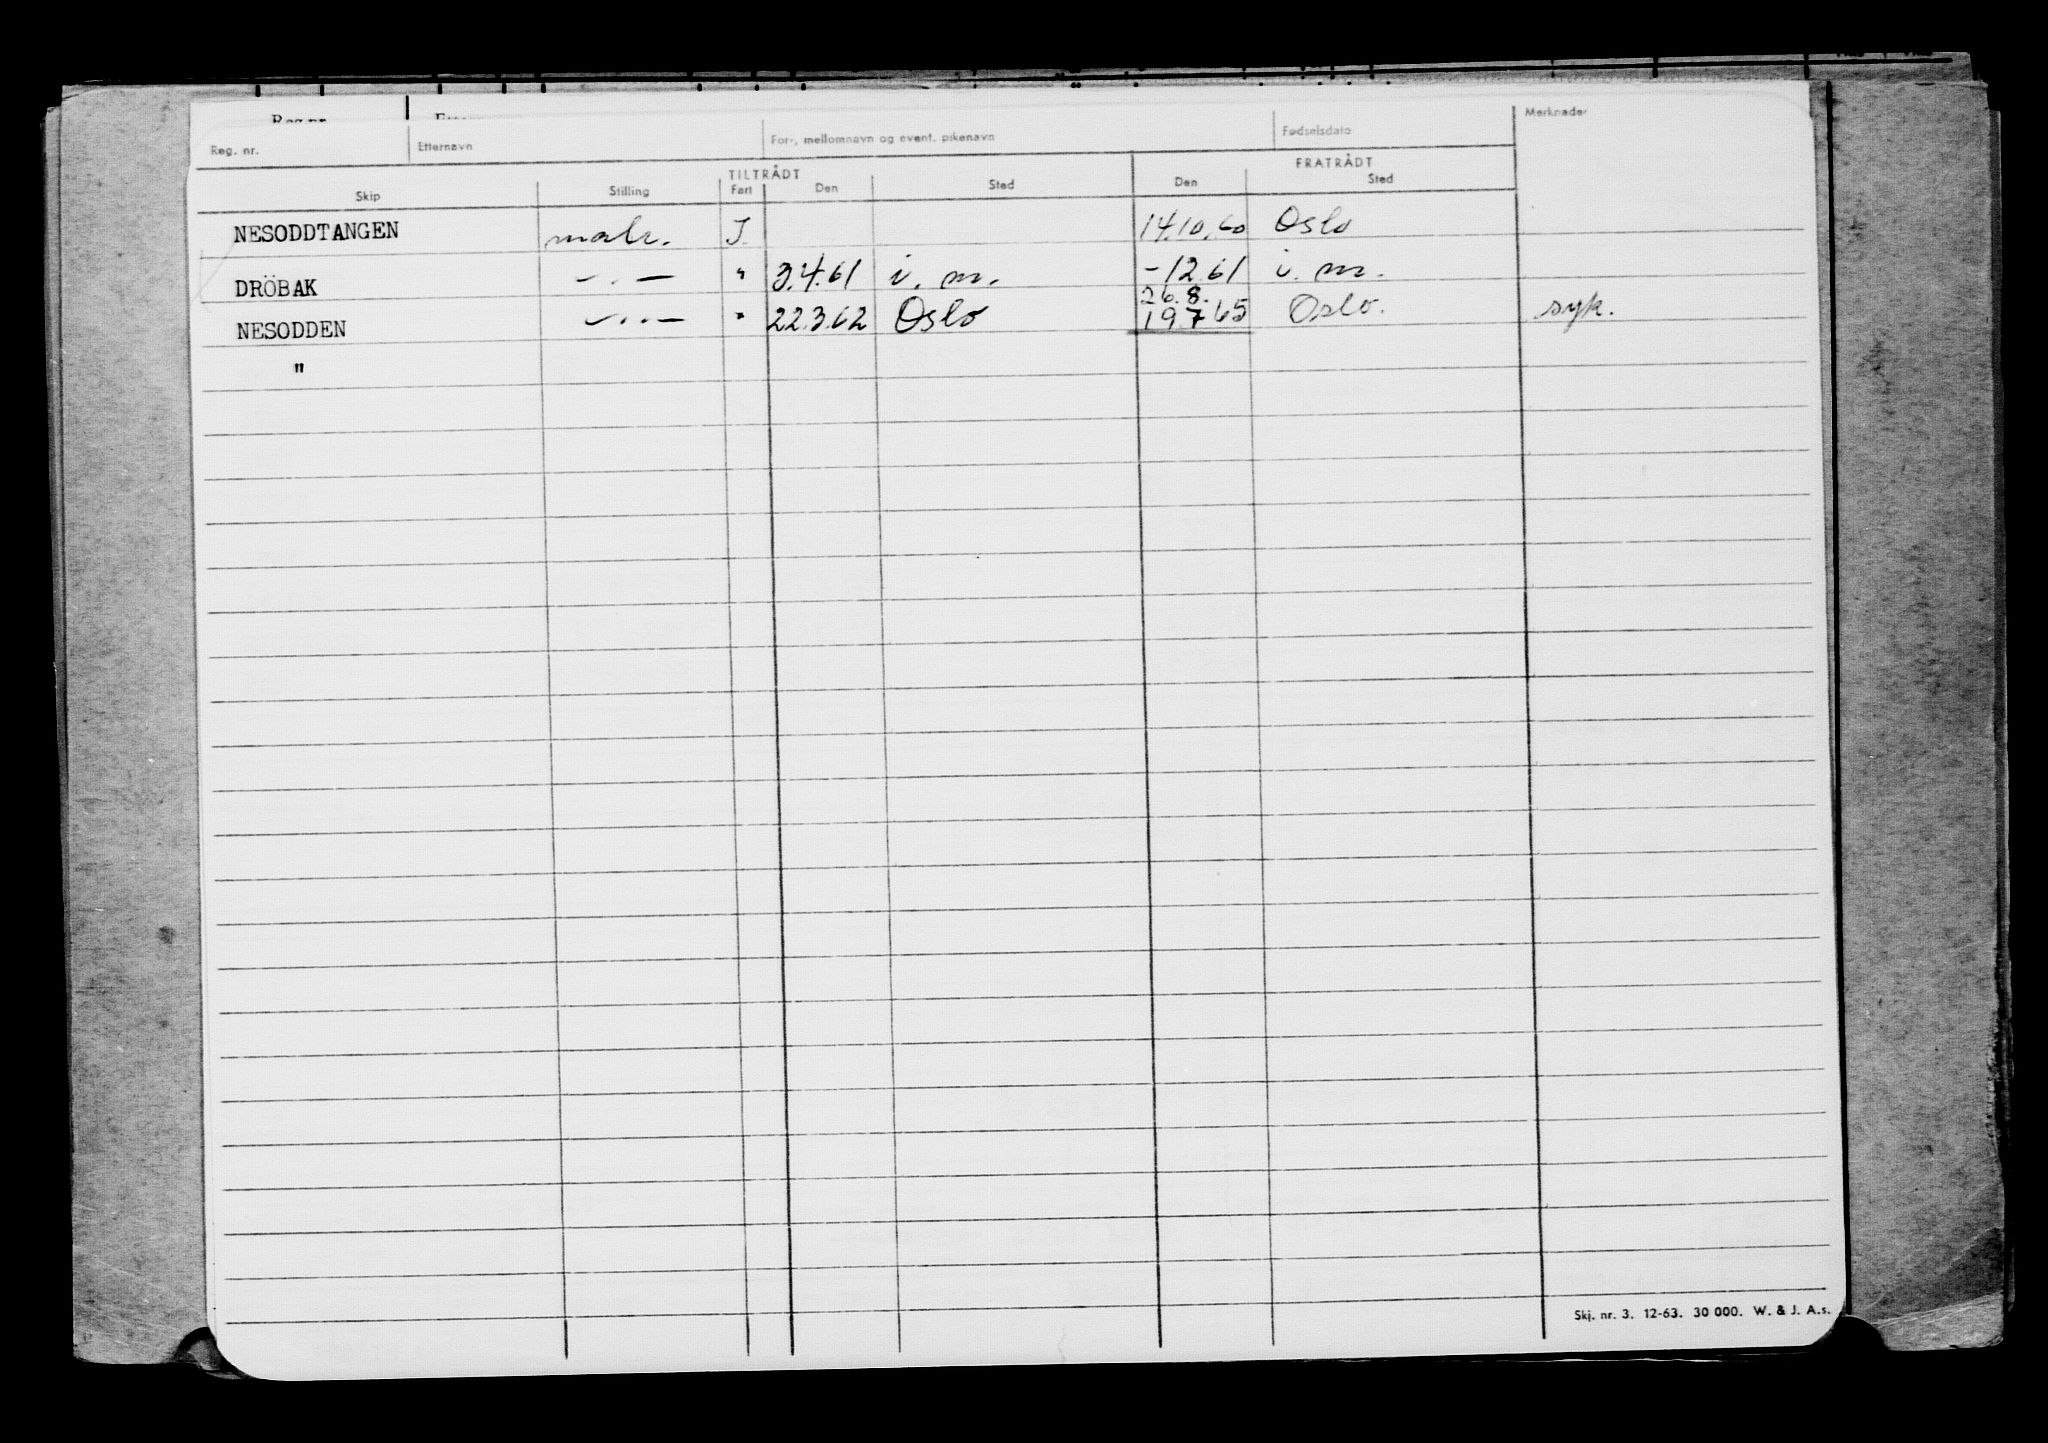 Reg. nr. Etternavn For-, mellomnavn og event. pikenavn Fødselsdato Merknader
TILTRÅDT FRATRÅDT
Skip Stilling Fart Den Sted Den Sted
NESODDTANGEN matr. I. 14.10.60 Oslo
DRÖBAK —„— " 3.4.61 i. m. -12.61 i. m.
26.8.
NESODDEN —„— " 22.3.62 Oslo 19.7.65 Oslo. syk.
"
Skj. nr. 3. 12-63. 30 000. W. & J. A.s.